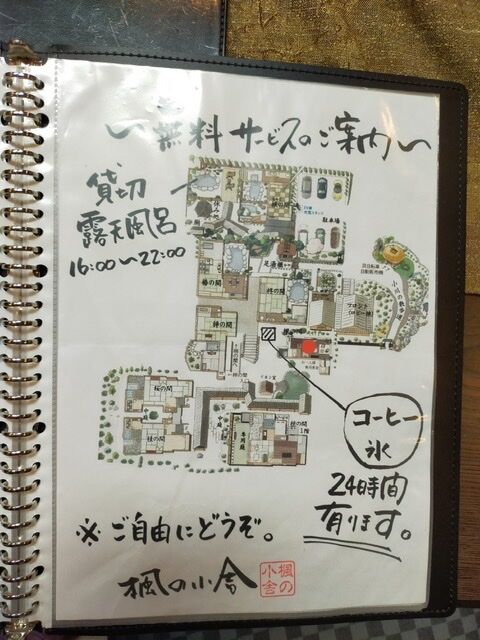 〜無料サービスのご案内〜
貸切
露天風呂
16:00〜22:00
駐車場
足湯
椿の間
柊の間
フロント
桜の間
桂の間
コーヒー
氷
24時間
有ります。
※ご自由にどうぞ。
楓の小舎
楓の
小舎